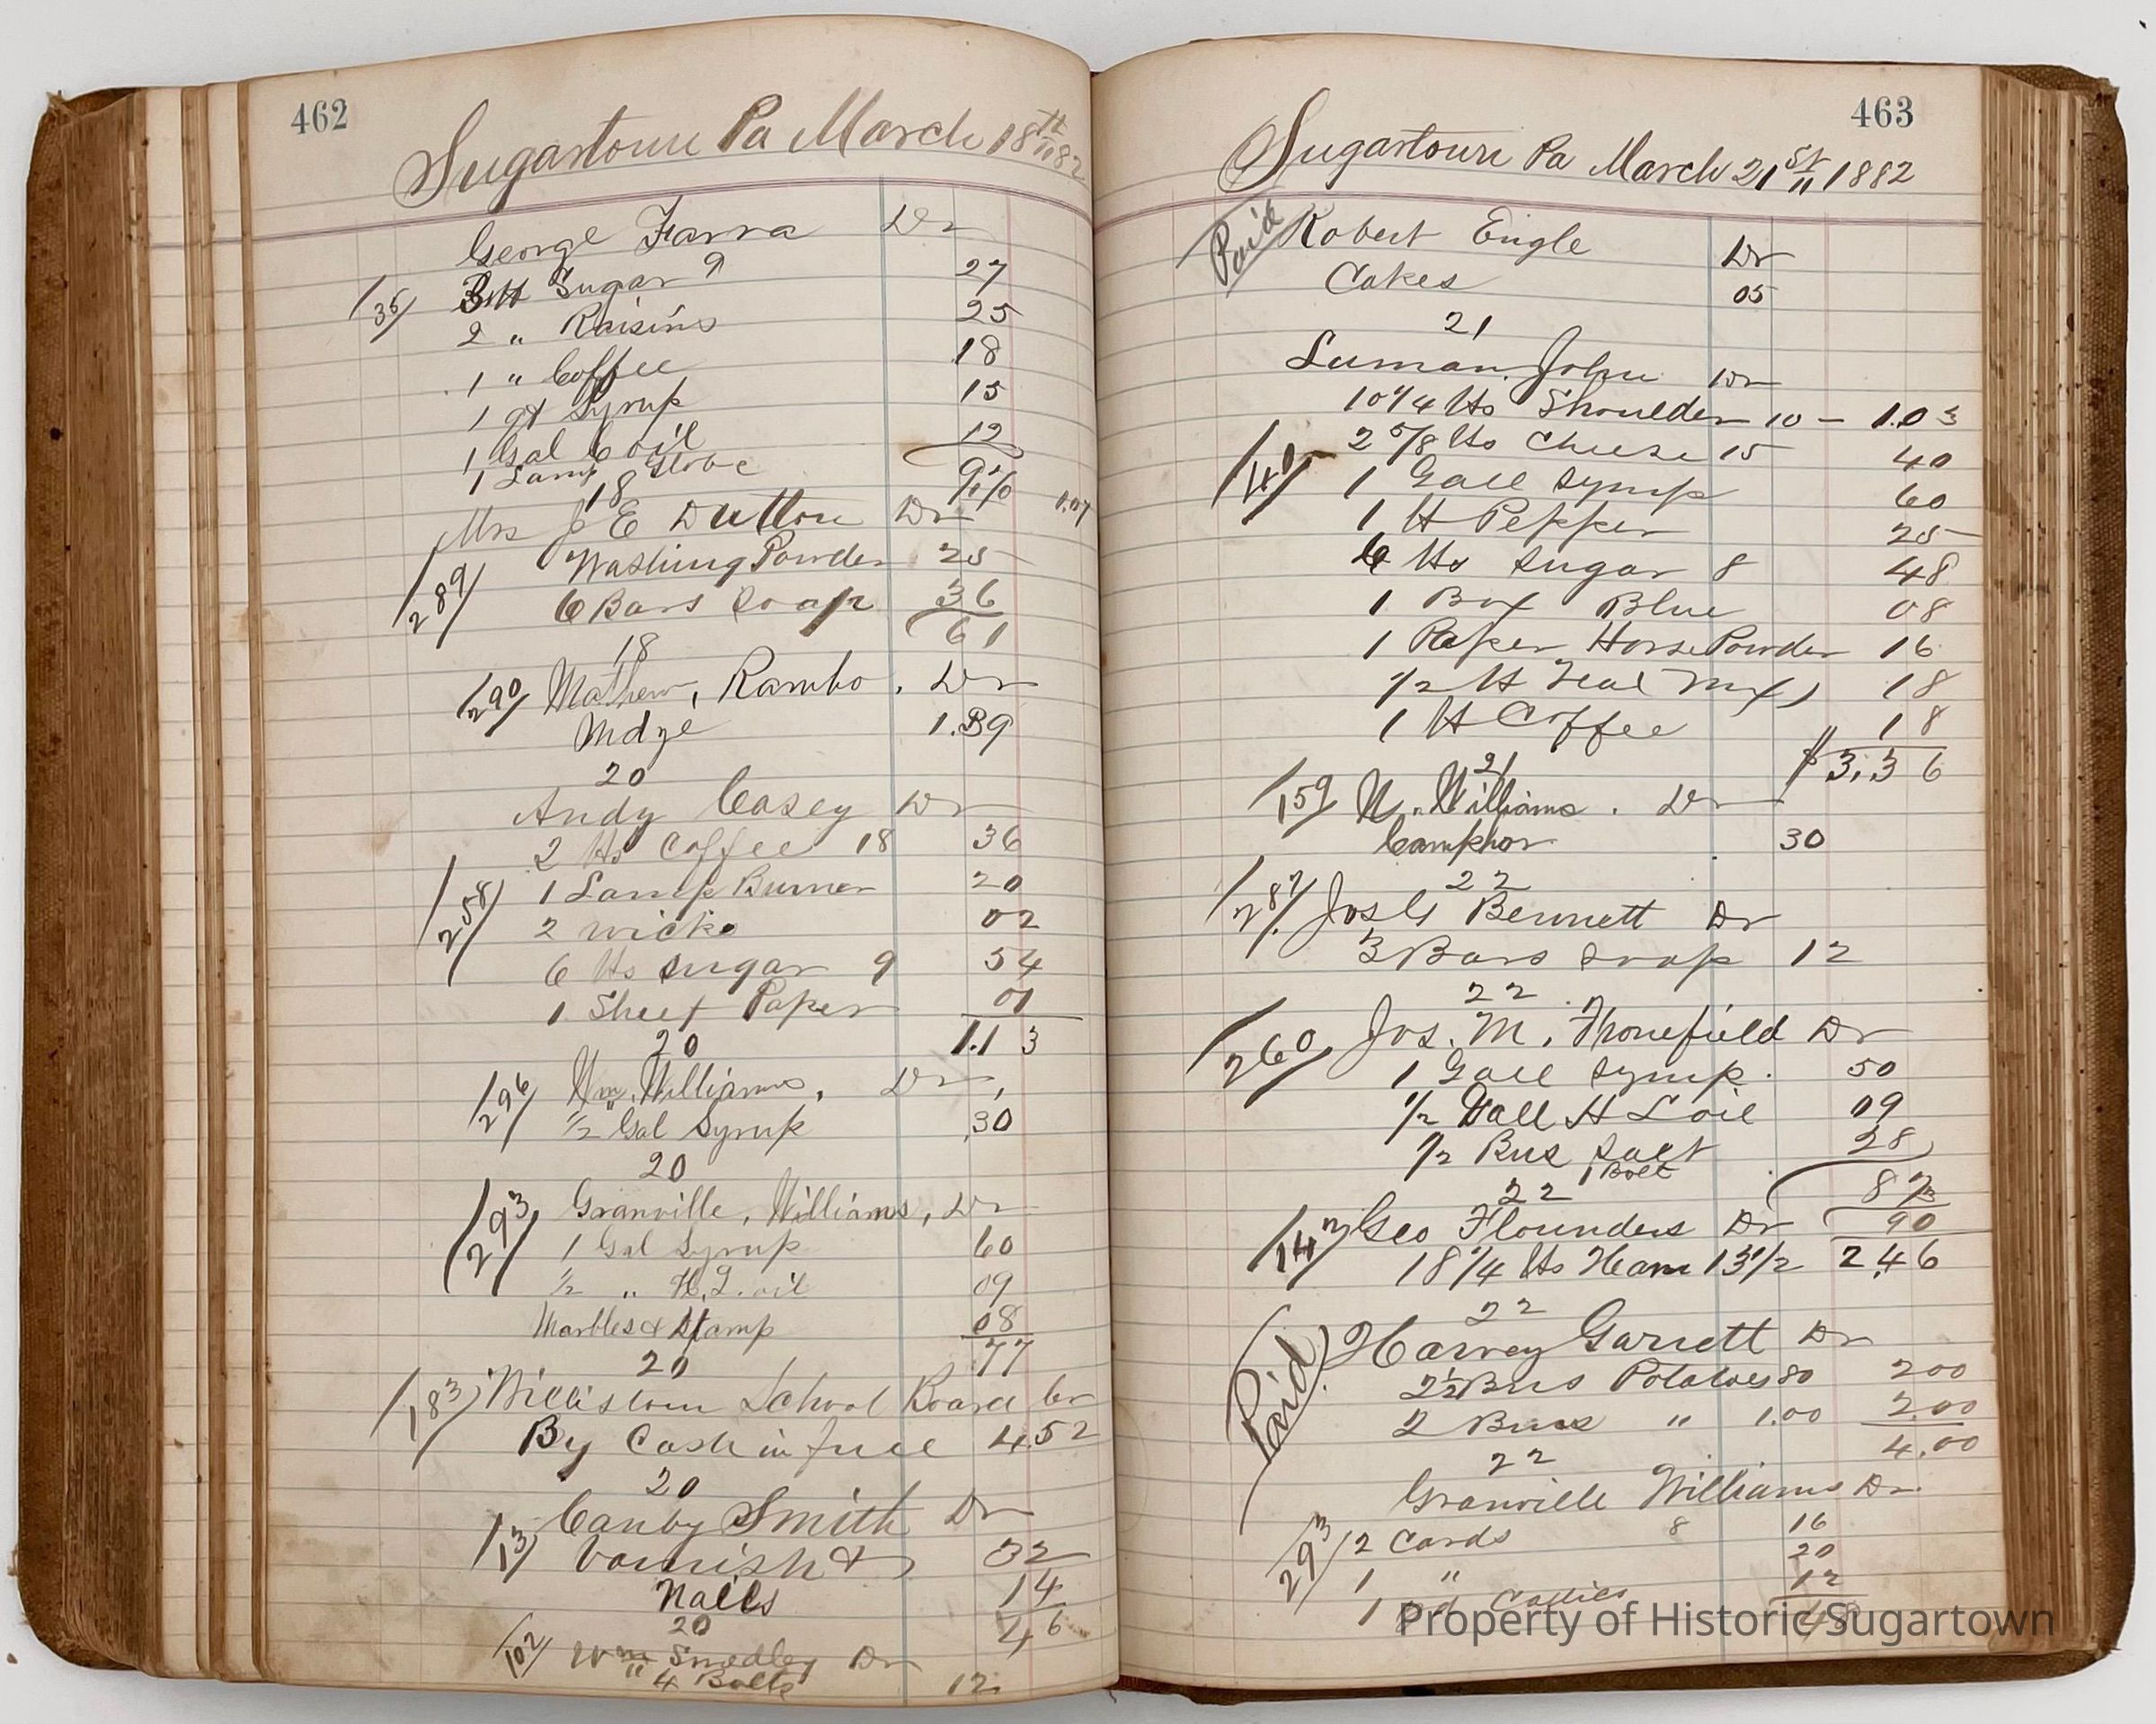 462
Sugartown Pa March 18th 1882
George Farra Dr
/35/ 3 lb Sugar 9 27
2 " Raisins 25
1 " Coffee 18
1 qt Syrup 15
1 Gal C oil 12
1 Lamp Globe
18
1.07
Mrs J E Dutton Dr
/289/ Washing Powder 25
6 Bars Soap 36
61
18
/290/ Mathew, Rambo, Dr
Mdze 1.39
20
Andy Casey Dr
2 lbs Coffee 18 36
/258/ 1 Lamp Burner 20
2 wicks 02
6 lbs sugar 9 54
1 Sheet Paper 01
20 1.13
/296/ Wm. Williams, Dr
1/2 Gal Syrup .30
20
/293/ Granville, Williams, Dr
1 Gal Syrup 60
1/2 " H. L. oil 09
Marbles & Stamp 08
20 .77
/183/ Willistown School Board Cr
By Cash in full 4.52
20
Canby Smith Dr
/13/ Varnish & 32
Nails 14
20 46
/102/ Wm Smedley Dr
4 Bolts 12
463
Sugartown Pa March 21st 1882
Paid Robert Engle Dr
Cakes 05
21
Luman John Dr
10 1/4 lbs Shoulder 10 - 1.03
2 5/8 lbs Cheese 15 40
/140/ 1 Gall Syrup 60
1 lb Pepper 25
6 lbs Sugar 8 48
1 Box Blue 08
1 Paper Horse Powder 16
1/2 lb Tea (mx) 18
1 lb Coffee 18
21 $3.36
/159/ N. Williams. Dr
Camphor 30
22
/287/ Jos G Bennett Dr
3 Bars Soap 12
22
/260/ Jos. M. Thonefield Dr
1 Gall Syrup. 50
1/2 Gall H L oil 09
1/2 Bus Salt 28
1 Bolt
22 87
3
90
/142/ Geo Flounders Dr
18 1/4 lbs Ham 13 1/2 2.46
22
Paid Harvey Garrett Dr
2 1/2 Bus Potatoes 80 200
2 Bus " 1.00 2.00
22 4.00
Granville Williams Dr
/293/ 2 Cards 8 16
1 " 20
1 12
48
Property of Historic Sugartown